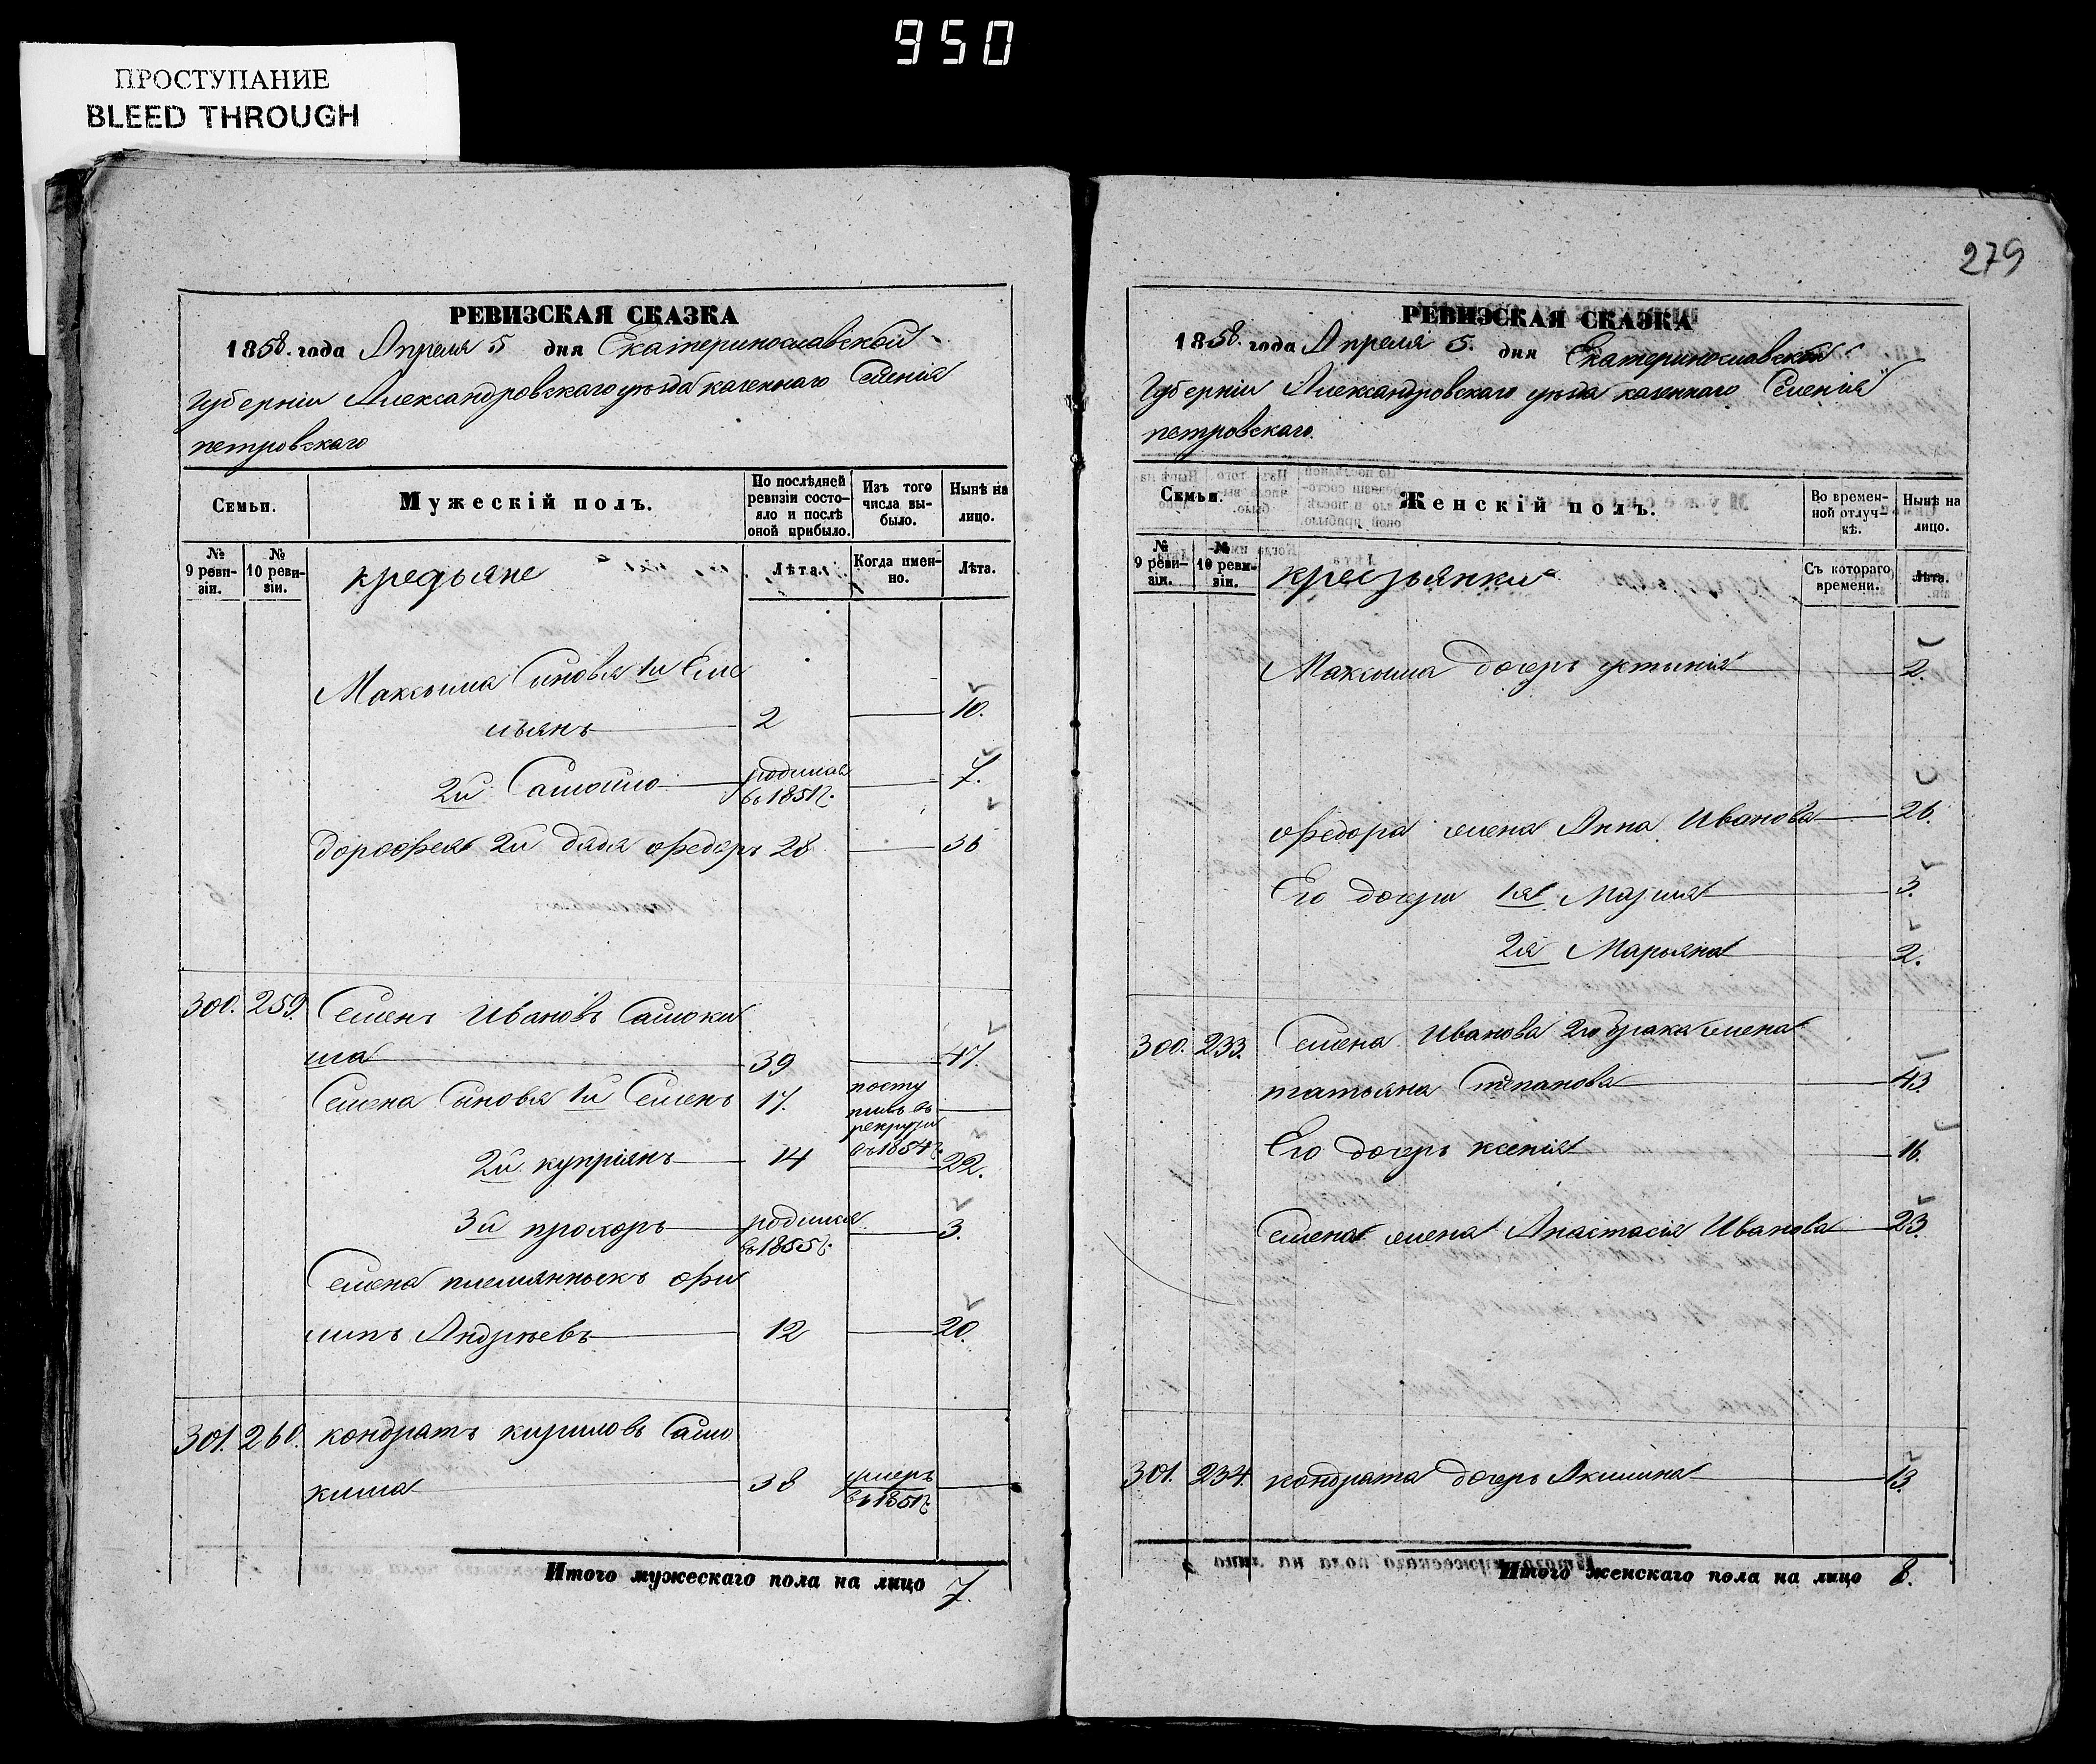 950
ПРОСТУПАНИЕ
BLEED THROUGH
РЕВИЗСКАЯ СКАЗКА
1858. года Апреля 5 дня Екатеринославской
Губерніи Александровского уѣзда казеннаго Селенія
петровскаго
Семьи.
Мужескій полъ.
По послѣдней ревизіи состояло и послѣ оной прибыло.
Изъ того числа выбыло.
Нынѣ на лицо.
№ 9 ревизіи.
№ 10 ревизіи.
Лѣта.
Когда именно.
Лѣта.
Максыма Синовья 1й Еме
льянъ 2 10.
2й Самойло родился въ 1851 г. 7.
Дорофея 2й дядя Федоръ 28 36
300. 259. Семенъ Ивановъ Самоки
ша 39 47.
Семена Сыновья 1й Семенъ 17. посту
пивъ въ
рекруты
въ 1854 г.
2й купріянъ 14 22.
3й прохоръ родился въ 1855 г. 3.
Семена племянныкъ фи
липъ Андрѣевъ 12 20.
301. 260. кондратъ кириловъ Само
киша 38 умеръ въ 1851 г.
Итого мужескаго пола на лицо 7.
279
РЕВИЗСКАЯ СКАЗКА
1858. года Апреля 5. дня Екатеринославской
Губерніи Александровскаго уѣзда казеннаго Селенія
петровскаго.
Семьи.
Женскій полъ.
Во временной отлучкѣ.
Нынѣ на лицо.
№ 9 ревизіи.
№ 10 ревизіи.
Съ котораго времени.
Лѣта.
Максыма дочерь устинія 2.
Федора жена Анна Иванова 26.
Его дочери 1я Марія 3.
2я Марьяна 2.
300. 233. Семена Иванова 2го брака жена
татьяна Степанова 43
Его дочерь ксенія 16.
Семена жена Анастасія Иванова 23.
301. 234. кондрата дочерь Акилина 13.
Итого женскаго пола на лицо 8.